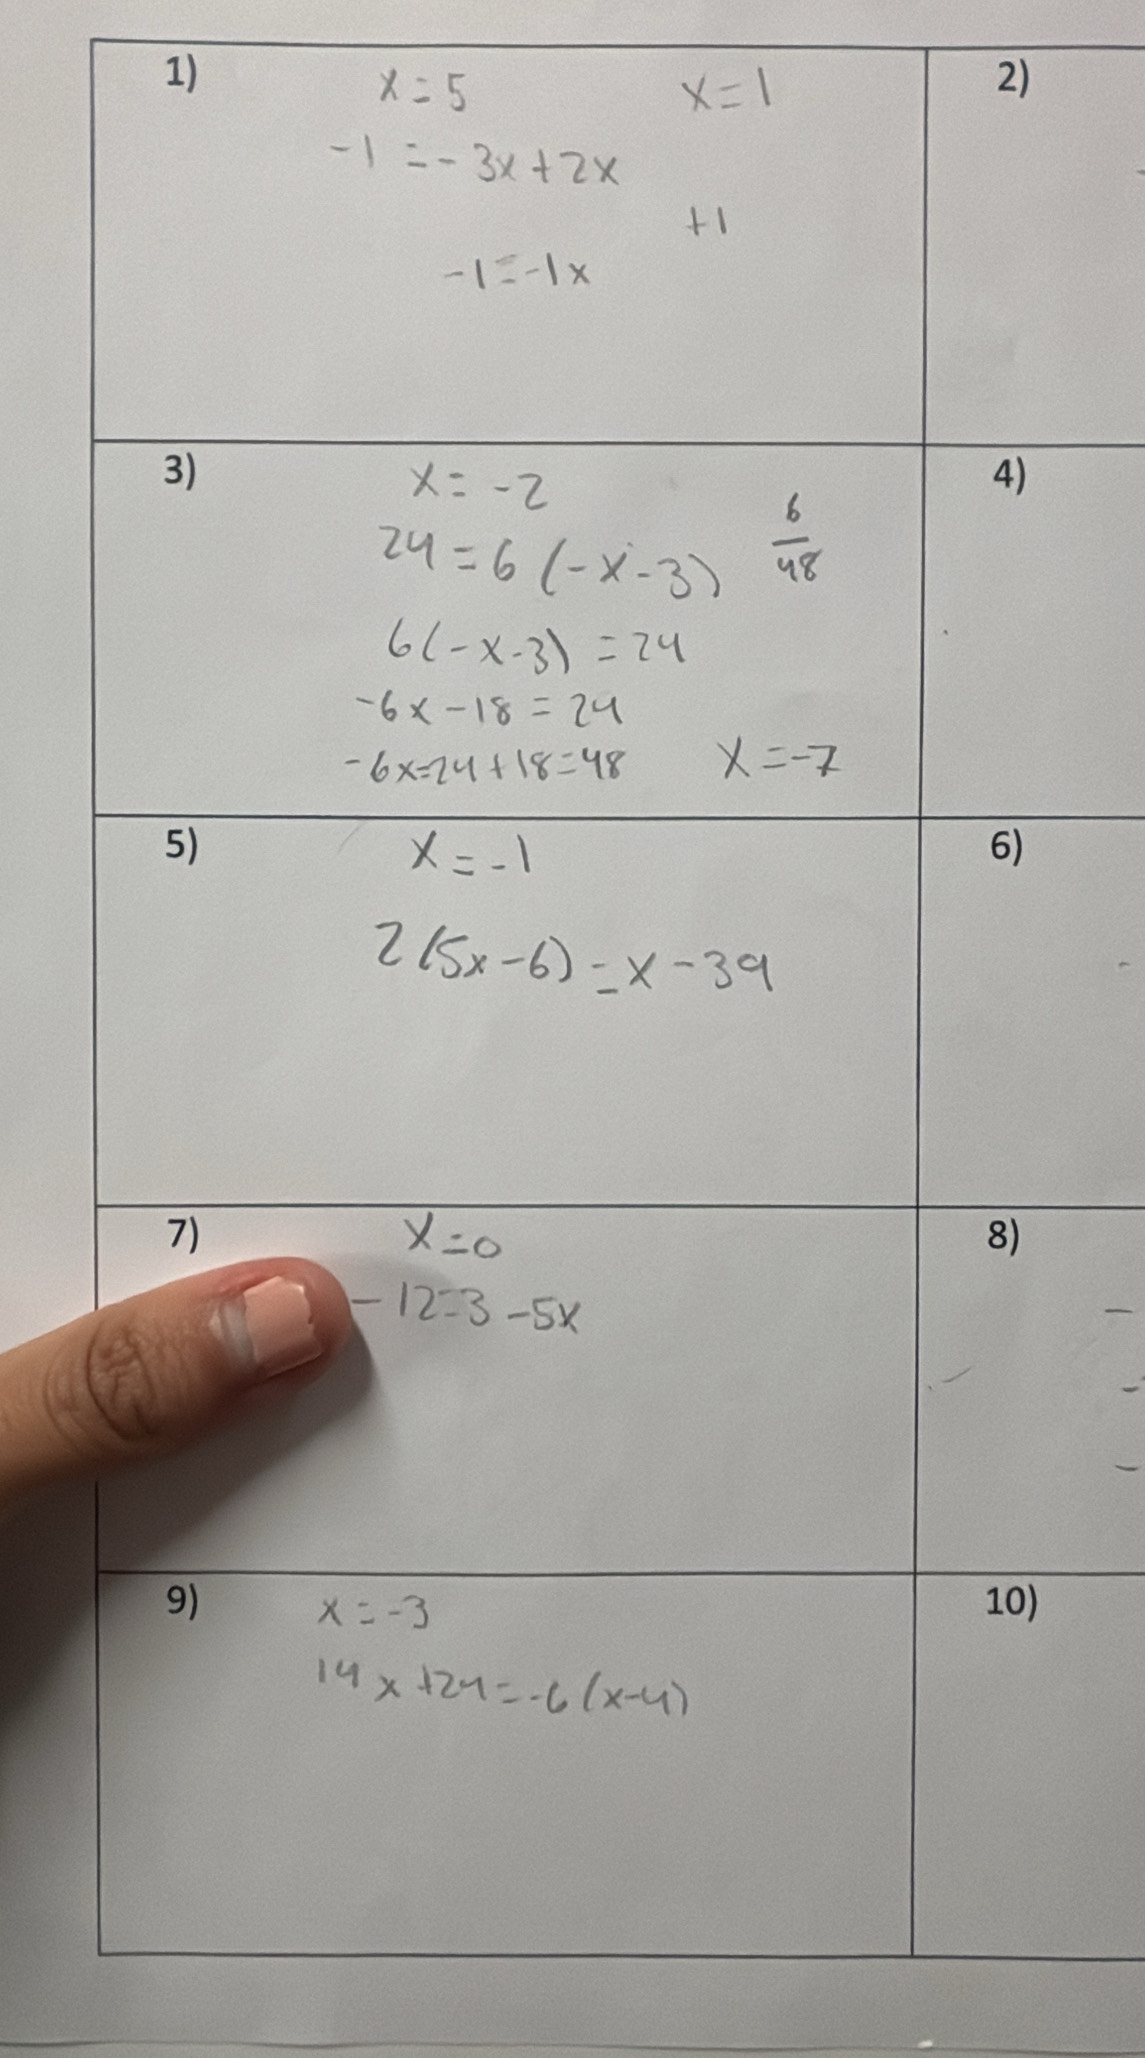 1)
x = 5
x = 1
-1 = - 3x + 2x
+1
-1 = -1x
2)
3)
x = -2
24 = 6 (-x - 3)
6
48
6(-x-3) = 24
-6x - 18 = 24
-6x=24 + 18 = 48
x = -7
4)
5)
x = -1
2(5x - 6) = x - 39
6)
7)
x = 0
- 12=3 - 5x
8)
9)
x = -3
14x + 24 = -6 (x-4)
10)